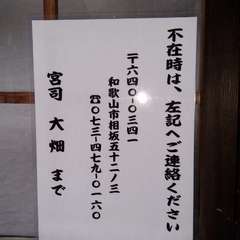 不在時は、左記へご連絡ください
〒六四〇-〇三四一
和歌山市相坂五十二ノ三
☎〇七三-四七九-〇一六〇
宮司 大畑 まで